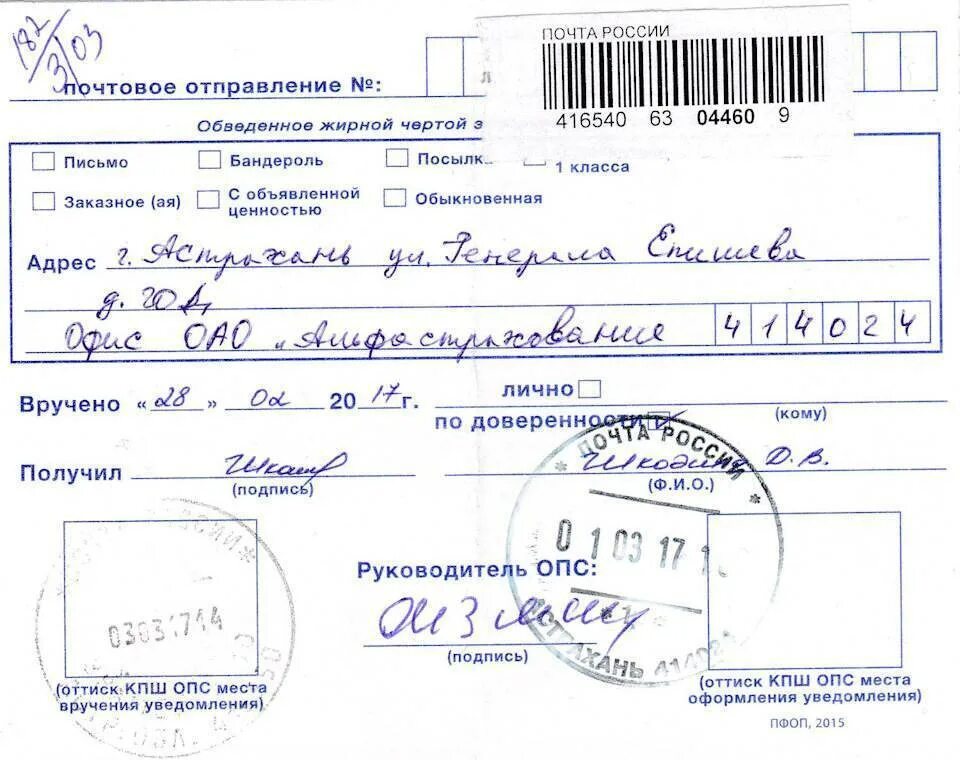 182
3/03
ПОЧТА РОССИИ
почтовое отправление №:
416540 63 04460 9
Обведенное жирной чертой з
Письмо Бандероль Посылк 1 класса
Заказное (ая) С объявленной ценностью Обыкновенная
Адрес г. Астрахань ул. Генерала Епишева
Офис ОАО "Альфастрахование 414024
Вручено «28» 02 2017г. лично
по доверенности (кому)
Получил Шкодин Д.В.
(подпись) (Ф.И.О.)
ПОЧТА РОССИИ
01 03 17 1
АСТРАХАНЬ
Руководитель ОПС:
(подпись)
03031714
(оттиск КПШ ОПС места
вручения уведомления)
(оттиск КПШ ОПС места
оформления уведомления)
ПФОП, 2015